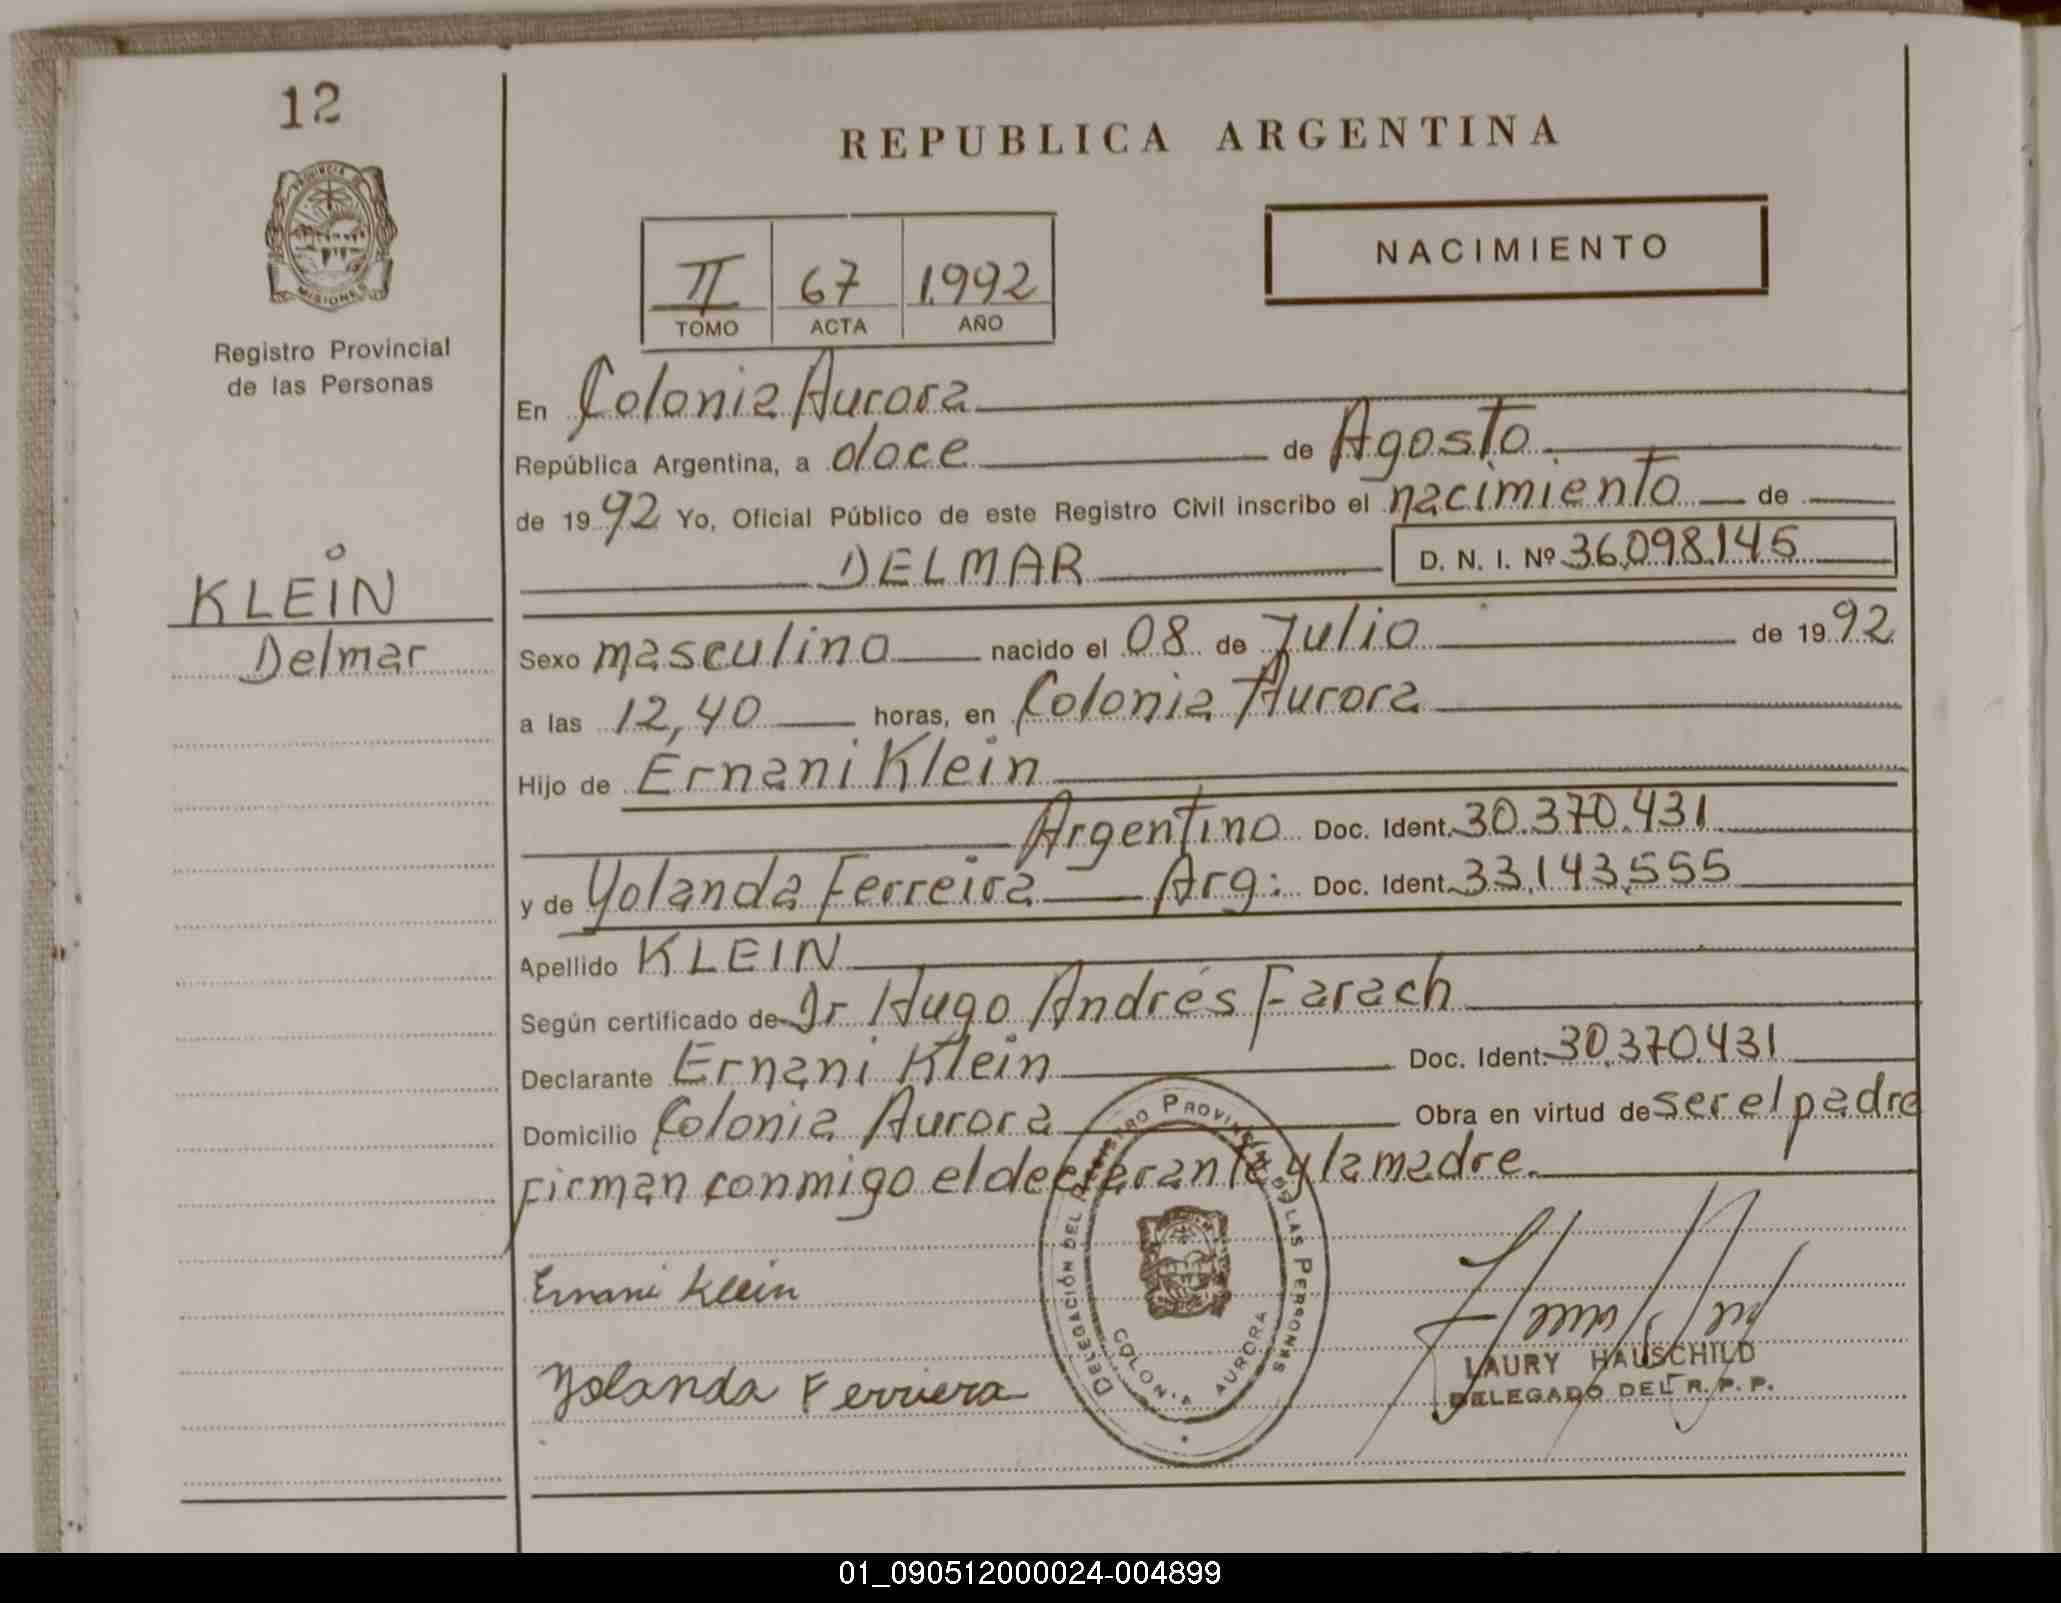 12
PROVINCIA DE
MISIONES
Registro Provincial
de las Personas
KLEIN
Delmar
REPUBLICA ARGENTINA
II 67 1.992
TOMO ACTA AÑO
NACIMIENTO
En Colonia Aurora
República Argentina, a doce de Agosto
de 1992 Yo, Oficial Público de este Registro Civil inscribo el nacimiento de
DELMAR D. N. I. Nº 36.098.145
Sexo masculino nacido el 08 de Julio de 1992
a las 12,40 horas, en Colonia Aurora
Hijo de Ernani Klein
Argentino Doc. Ident. 30.370.431
y de Yolanda Ferreira Arg: Doc. Ident. 33.143.555
Apellido KLEIN
Según certificado de Dr Hugo Andrés Farach
Declarante Ernani Klein Doc. Ident. 30.370.431
Domicilio Colonia Aurora Obra en virtud de ser el padre
Firman conmigo el declarante y la madre.
DELEGACIÓN DEL REGISTRO PROVINCIAL DE LAS PERSONAS
COLONIA AURORA
Ernani Klein
Yolanda Ferriera
LAURY HAUSCHILD
DELEGADO DEL R. P. P.
01_090512000024-004899